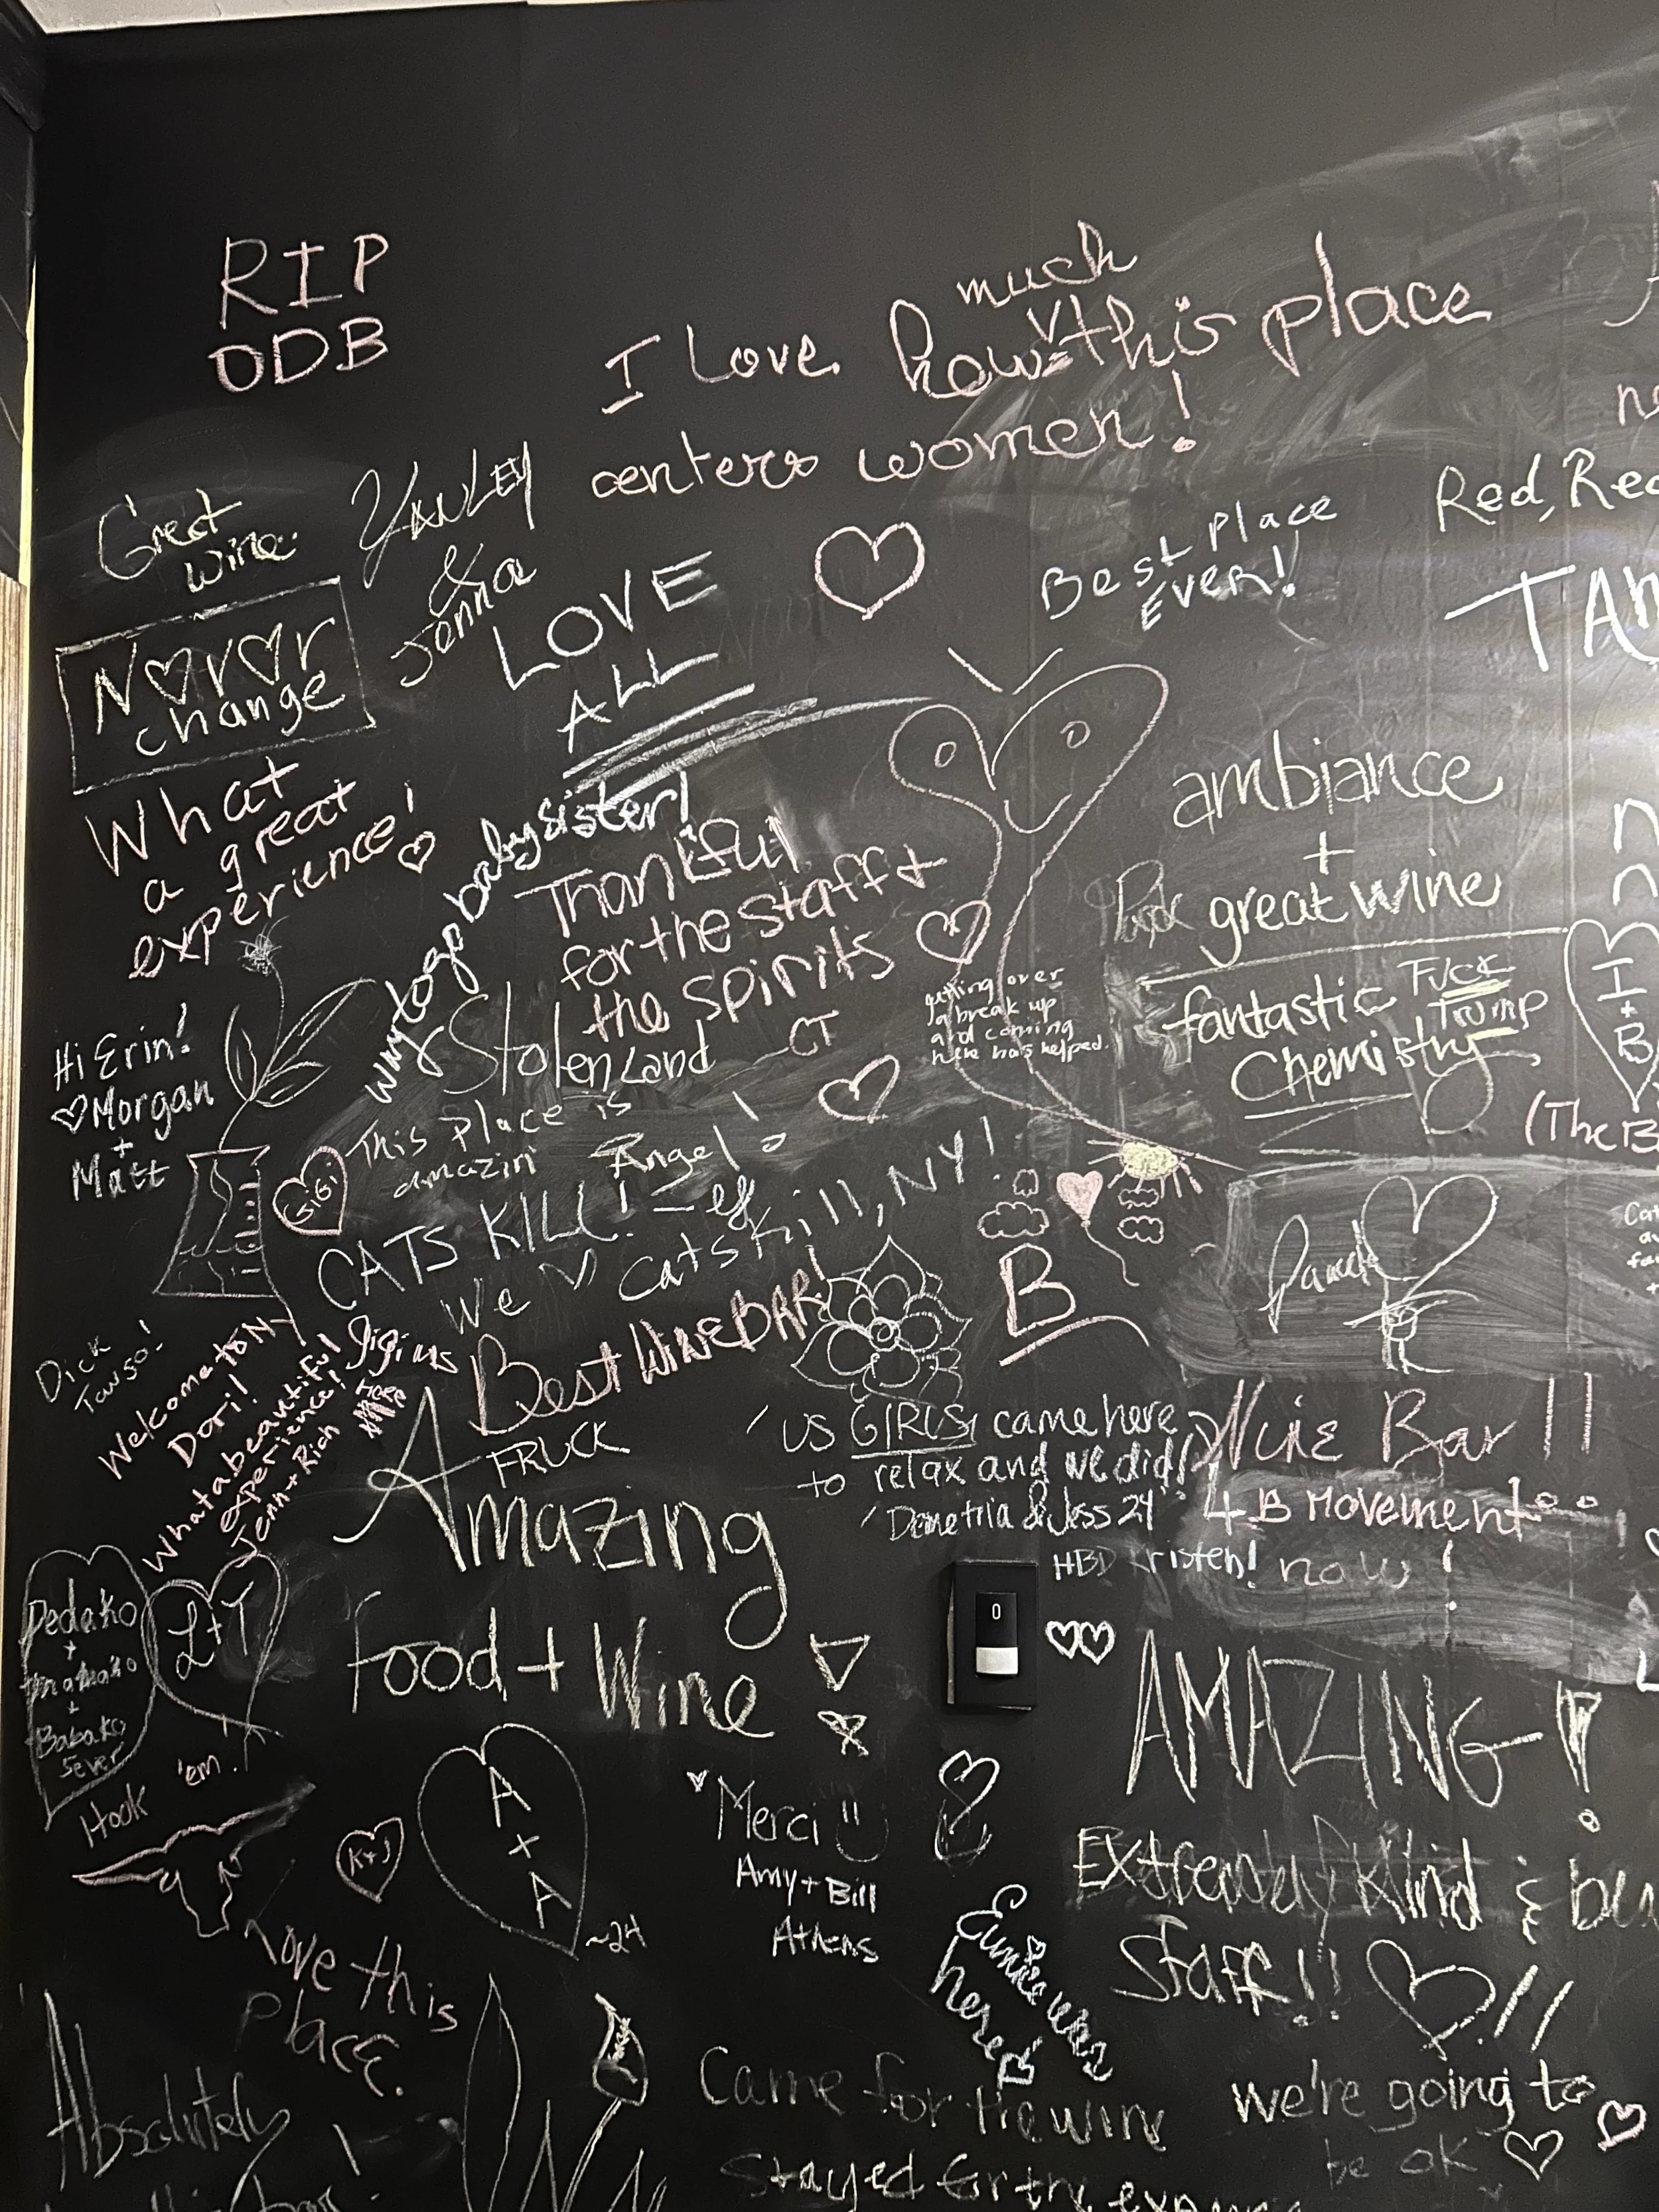 RIP
ODB
much
I Love how this place
centers women!
Great
wine
YANLEY
&
Jenna
LOVE
ALL
Best Place
EVER!
Red, Red
TAN
Never
change
What
a great
experience!
way to go baby sister!
Thankful
for the staff +
the spirits
Stolen Land
CT
getting over
a break up
and coming
here has helped.
ambiance
+
great wine
fantastic
Chemistry
Fuck
Trump
I
+
B
(The B
Hi Erin!
Morgan
+
Matt
GiGi
This Place is
amazin Angel!
CATS KILL!
We catskill, NY!
Best WINE BAR!
B
Dick
Tawso!
Welcome to NY
Dori!
What a beautiful
experience!
Jenn + Rich
gigi was
Here
FRUCK
Amazing
Food + Wine
US GIRLS came here
to relax and we did!
Demetria & Jess 24
Bar!!
4 B Movement
now!
HBD Kristen!
Dedako
+
+
Babako
5ever
L+T
Hook 'em!
K+J
A
+
A
~24
Merci
Amy + Bill
Athens
AMAZING!
Extremely Kind &
Staff!! !!
Eunice was
here
Love this
place.
Absolutely
Came for the wine
Stayed for the
we're going to
be ok